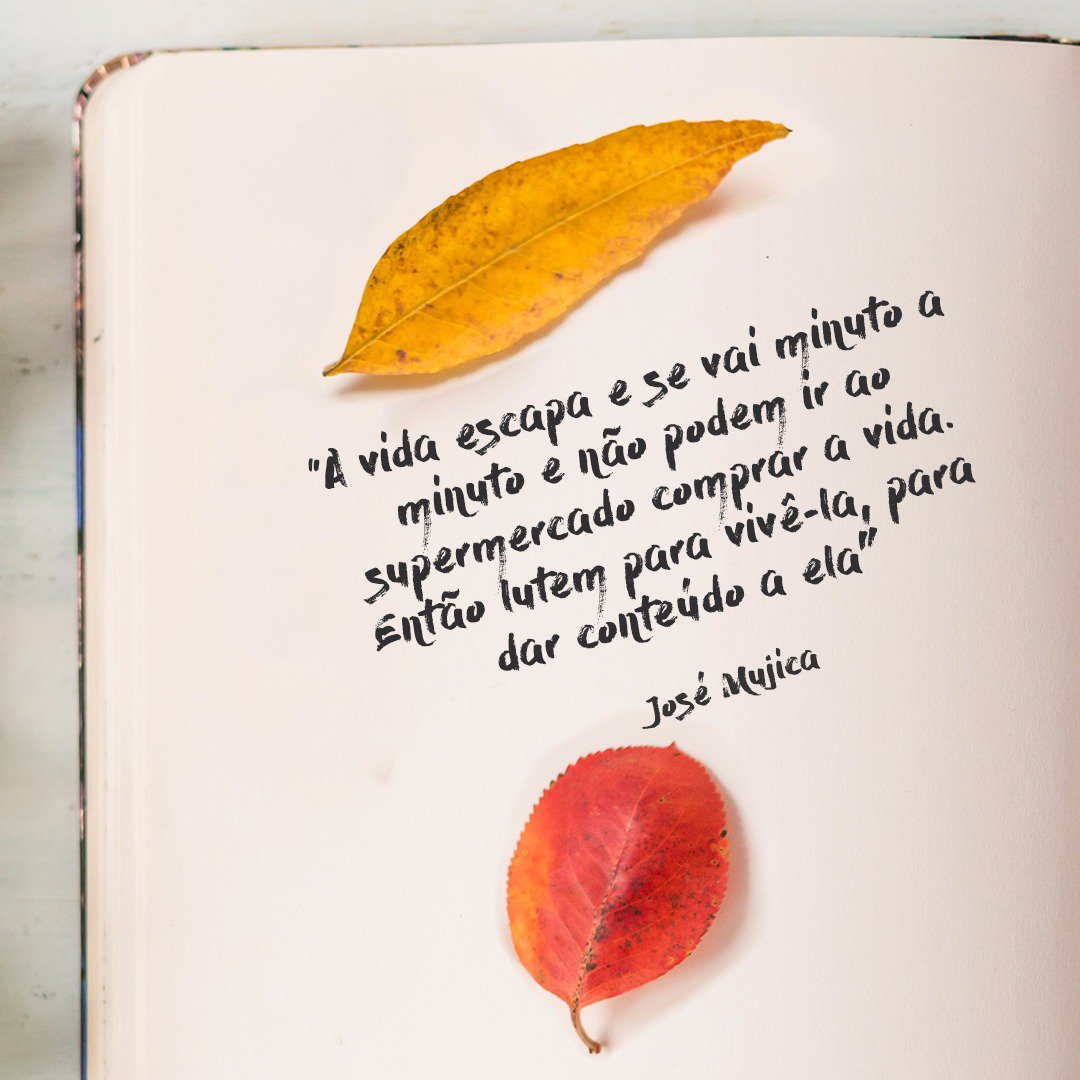 "A vida escapa e se vai minuto a
minuto e não podem ir ao
supermercado comprar a vida.
Então lutem para vivê-la, para
dar conteúdo a ela"
José Mujica